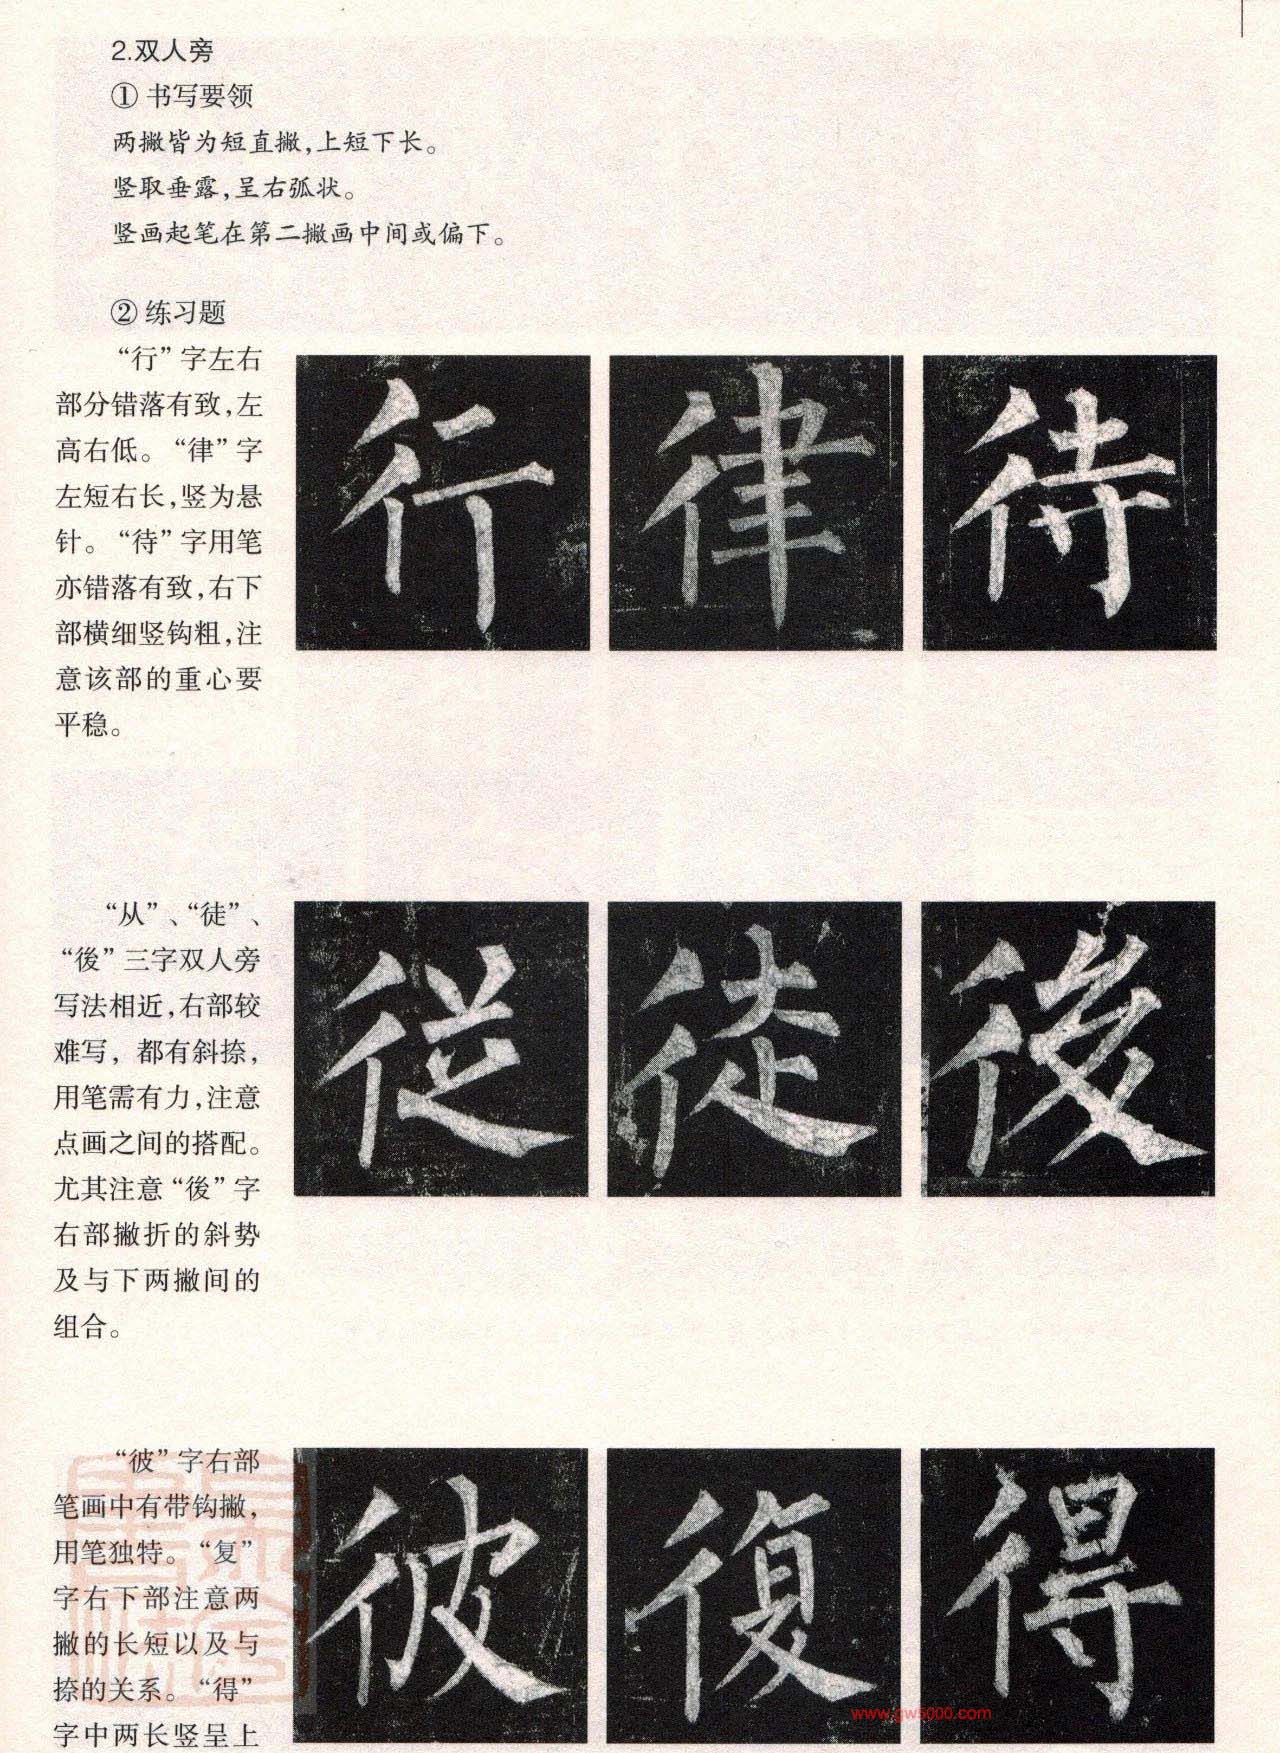 2.双人旁
① 书写要领
两撇皆为短直撇，上短下长。
竖取垂露，呈右弧状。
竖画起笔在第二撇画中间或偏下。
② 练习题
“行”字左右
部分错落有致，左
高右低。“律”字
左短右长，竖为悬
针。“待”字用笔
亦错落有致，右下
部横细竖钩粗，注
意该部的重心要
平稳。
行 律 待
“从”、“徒”、
“後”三字双人旁
写法相近，右部较
难写，都有斜捺，
用笔需有力，注意
点画之间的搭配。
尤其注意“後”字
右部撇折的斜势
及与下两撇间的
组合。
従 徒 後
“彼”字右部
笔画中有带钩撇，
用笔独特。“复”
字右下部注意两
撇的长短以及与
捺的关系。“得”
字中两长竖呈上
彼 復 得
www.gw5000.com